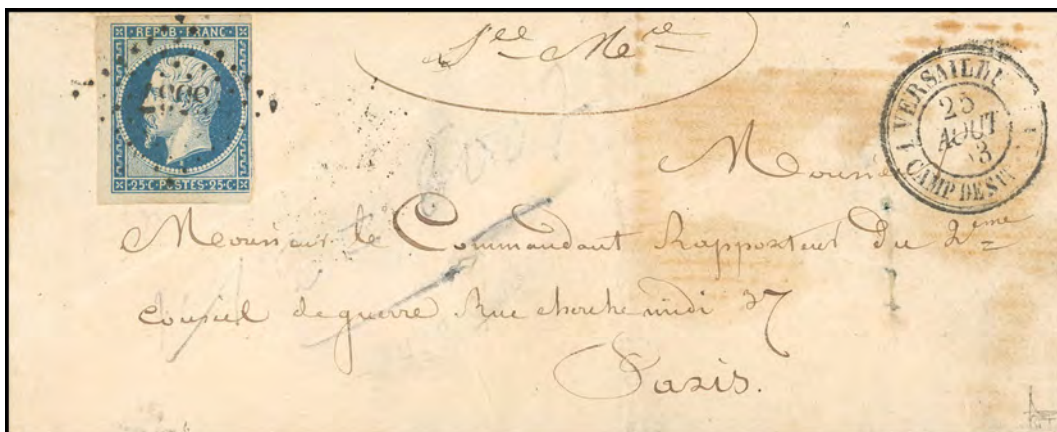 REPUB·FRANC·
25·C·POSTES·25·C·
See Mce
VERSAILLE
25
AOUT
53
CAMP DE S
Monsie
Monsieur le Commandant Rapporteur du 2eme
conseil de guerre Rue cherche midi 37
Paris.